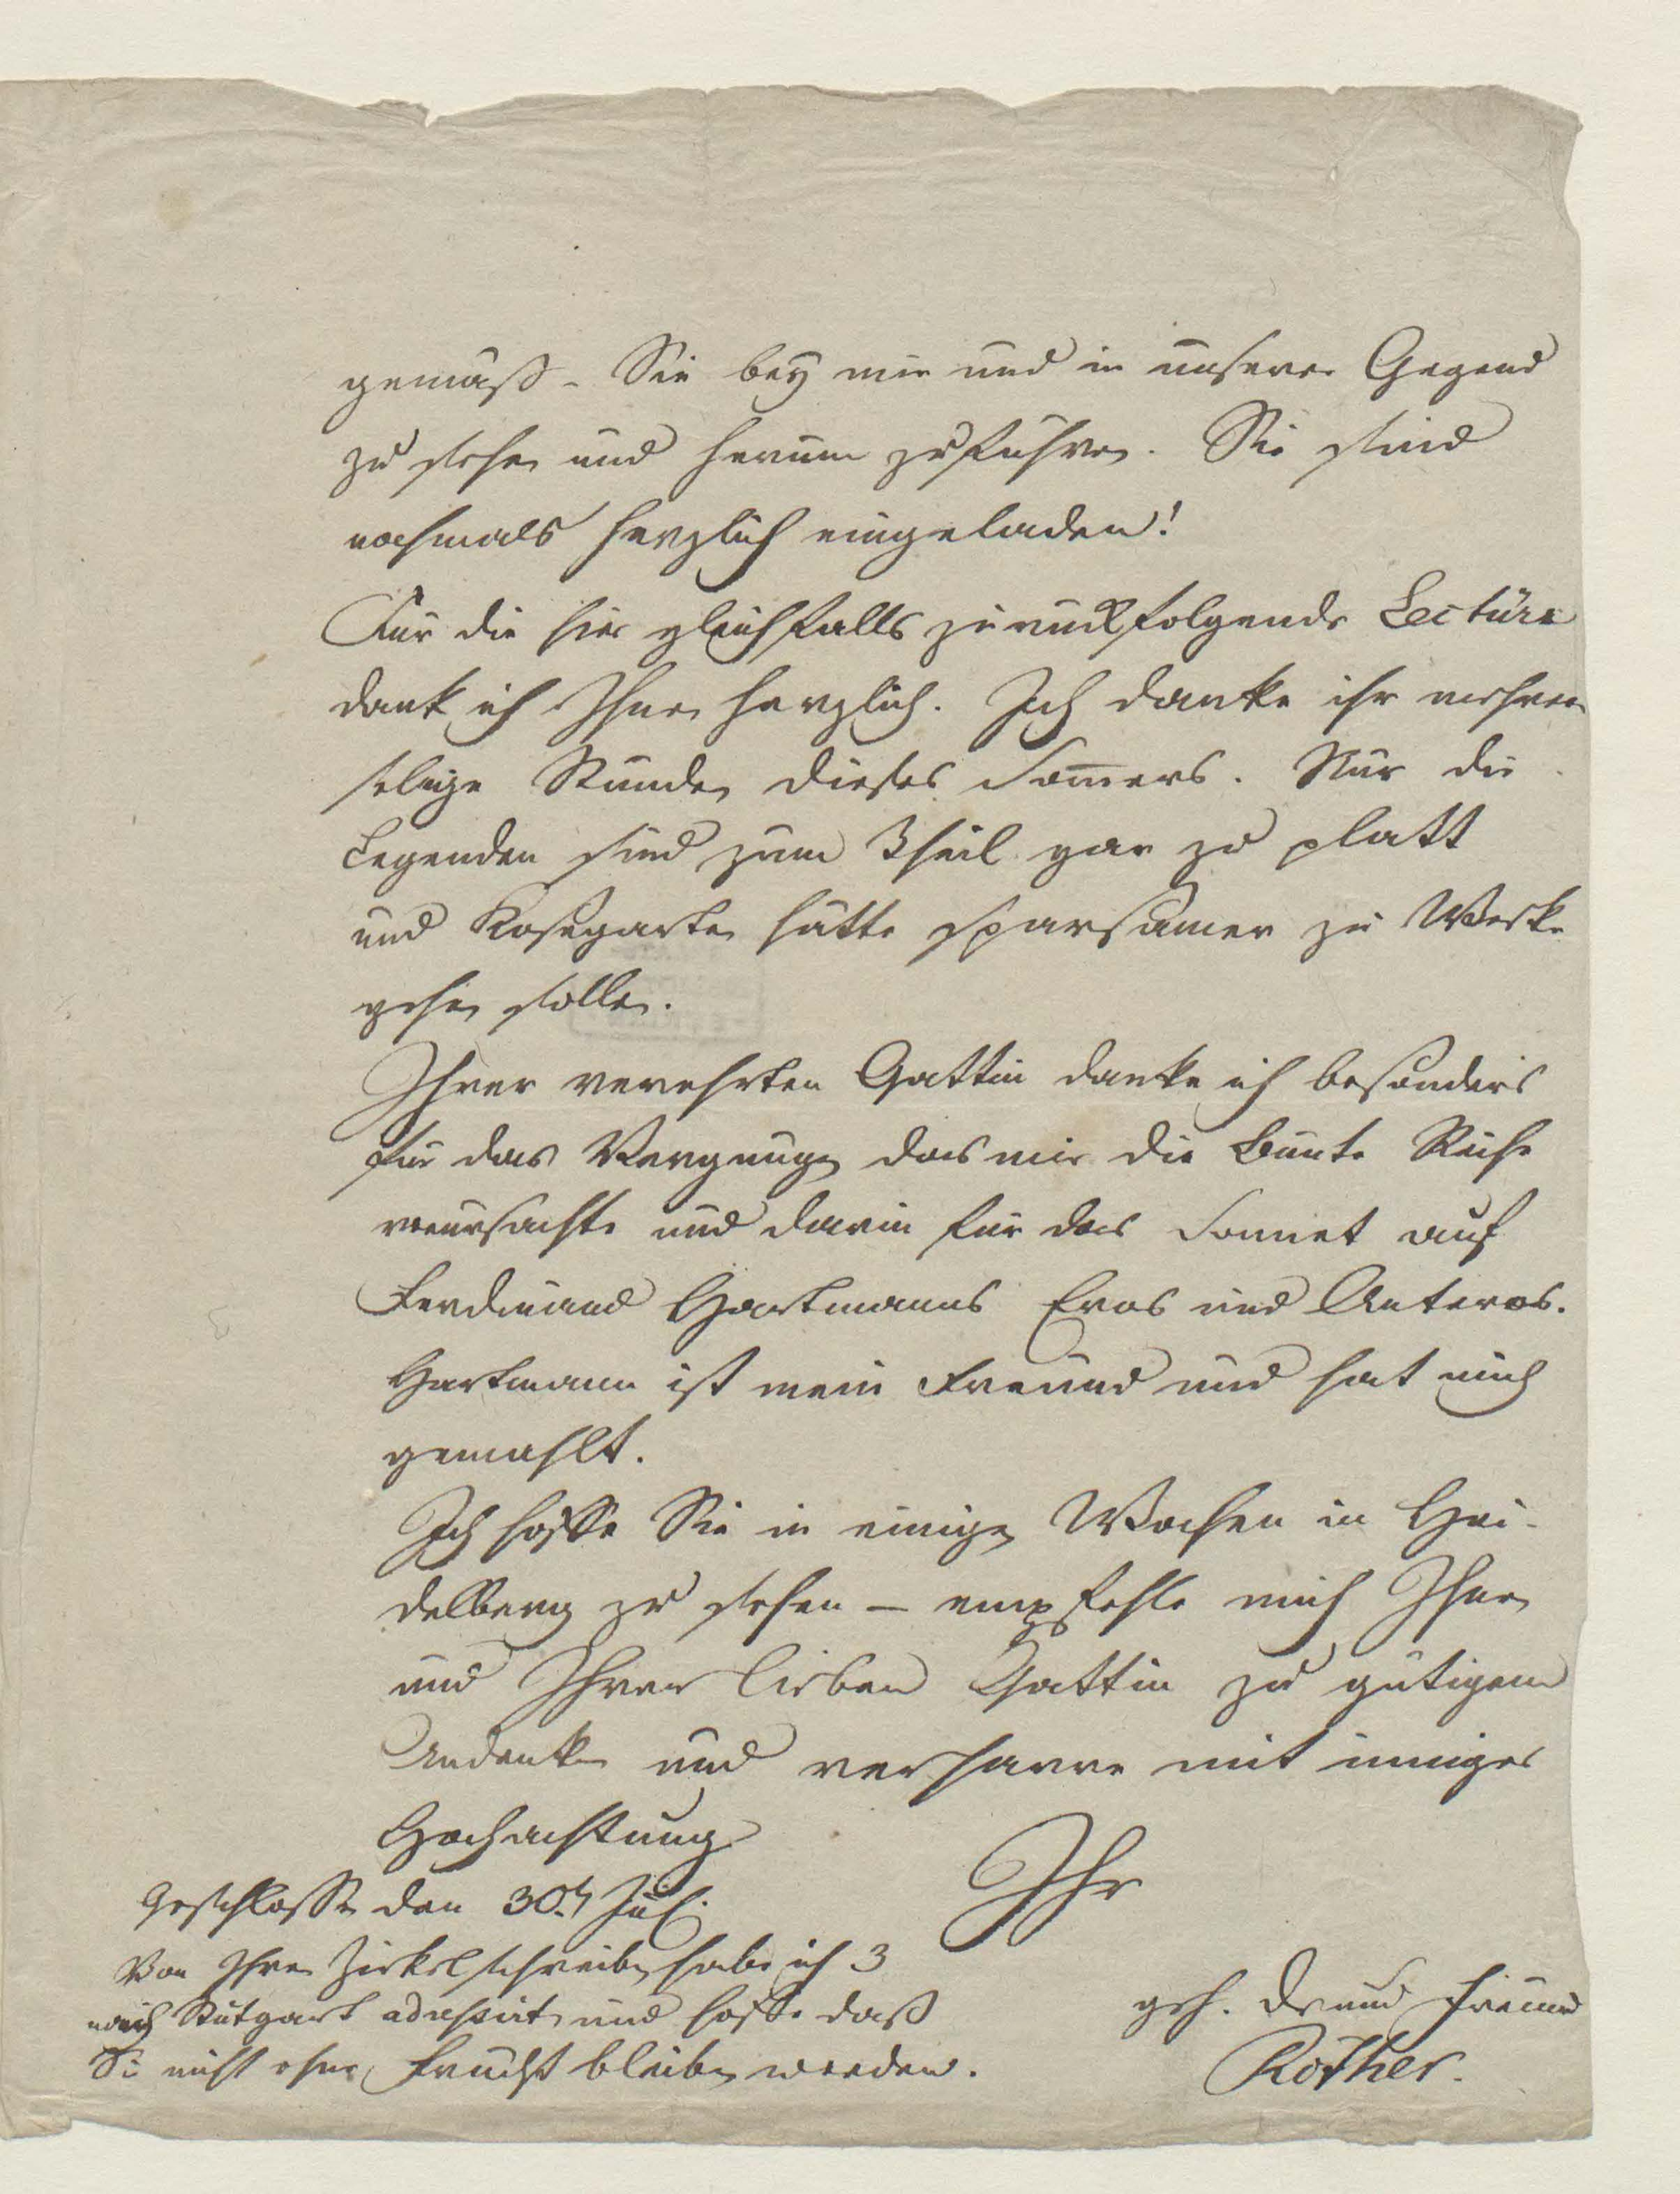 gemäß - Sie bey mir und in unserer Gegend
zu sehen und herum zu führen. Sie sind
nochmals herzlich eingeladen!
Für die hier gleichfalls zurückfolgende Lectüre
dank ich Ihnen herzlich. Ich danke ihr mehrere
selige Stunden dieses Som̄ers. Nur die
Legenden sind zum Theil gar zu platt
und Kosegarten hätte sparsamer zu Werke
gehen sollen.
Ihrer verehrten Gattin danke ich besonders
für das Vergnügen das mir die Bunte Reihe
verursachte und darin für das Sonnet auf
Ferdinand Hartmanns Eros und Anteros.
Hartmann ist mein Freund und hat mich
gemahlt.
Ich hoffe Sie in einigen Wochen in Hei-
delberg zu sehen – empfehle mich Ihnen
und Ihrer lieben Gattin zu gütigem
Andenken und verharre mit inniger
Hochachtung
Ihr
geh. Dr und Freund
Rother.
Geschlossen den 30t Jul.
Von Ihren Zirkelschreiben habe ich 3
nach Stutgart adressirt und hoffe daß
Sie nicht ohne Frucht bleiben werden.